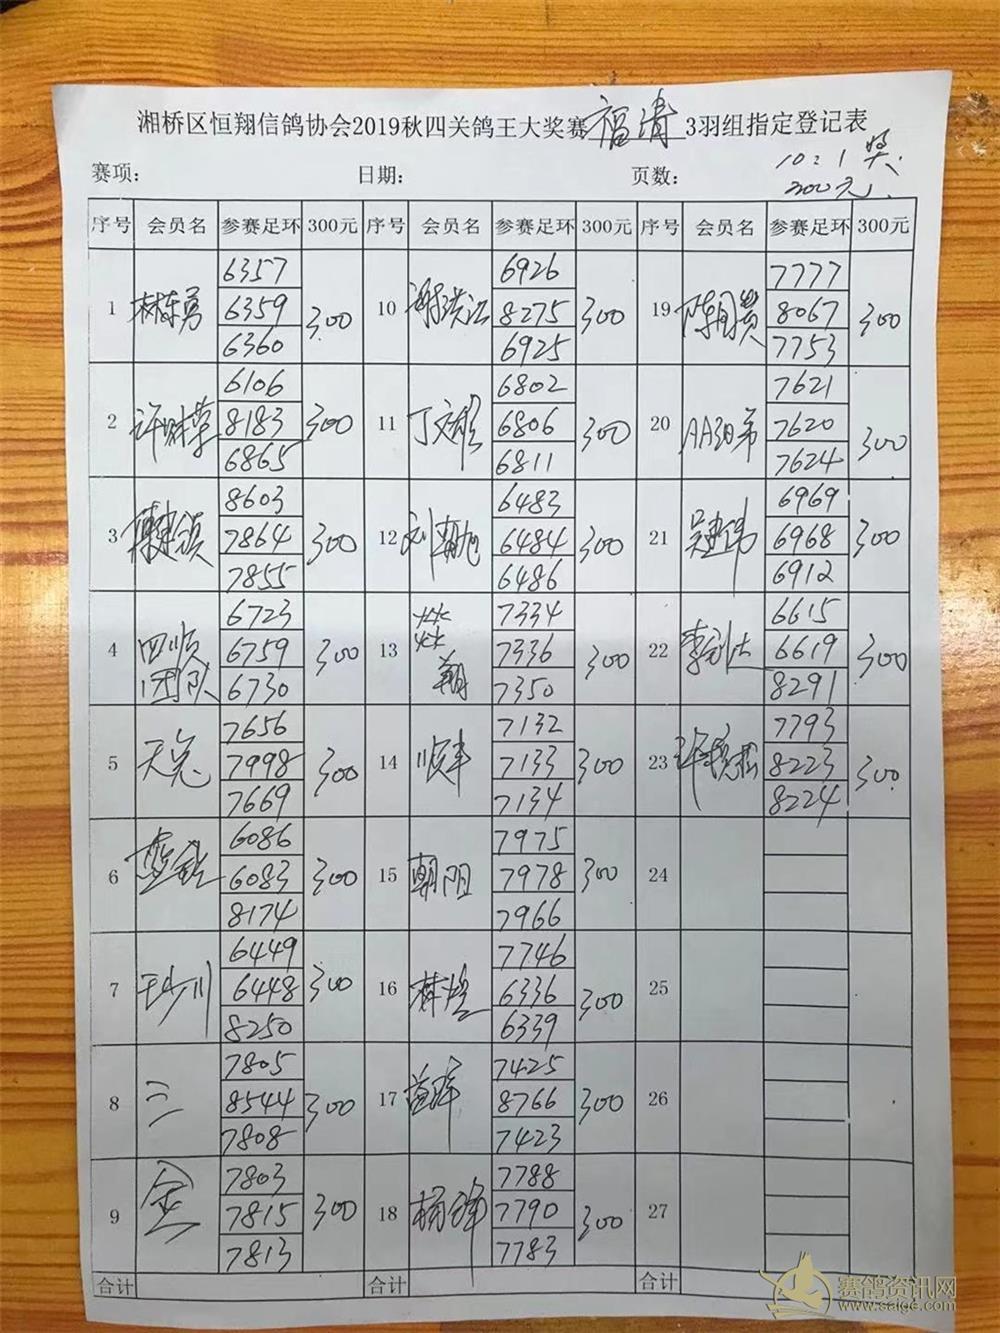 湘桥区恒翔信鸽协会2019秋四关鸽王大奖赛福清3羽组指定登记表
赛项: 日期: 页数: 10:1奖
300元
序号 会员名 参赛足环 300元 序号 会员名 参赛足环 300元 序号 会员名 参赛足环 300元
6357 6926 7777
1 林东勇 6359 300 10 谢洪江 8275 300 19 8067 300
6360 6925 7753
6106 6802 7621
2 许财荣 8183 300 11 丁文雄 6806 300 20 AA兄弟 7620 300
6865 6811 7624
8603 6483 6969
3 7864 300 12 刘朝旭 6484 300 21 吴建伟 6968 300
7855 6486 6912
6723 7334 6615
4 四顺团队 6759 300 13 7336 300 22 6619 300
6730 7350 8291
7656 7132 7793
5 天兔 7998 300 14 顺丰 7133 300 23 8223 300
7669 7134 8224
6086 7975
6 6083 300 15 朝阳 7978 300 24
8174 7966
6449 7746
7 6448 300 16 林煌 6336 300 25
8250 6339
7805 7425
8 二 8544 300 17 8766 300 26
7808 7423
7803 7788
9 金 7815 300 18 杨锋 7790 300 27
7813 7783
合计 合计 合计
赛鸽资讯网
www.saige.com